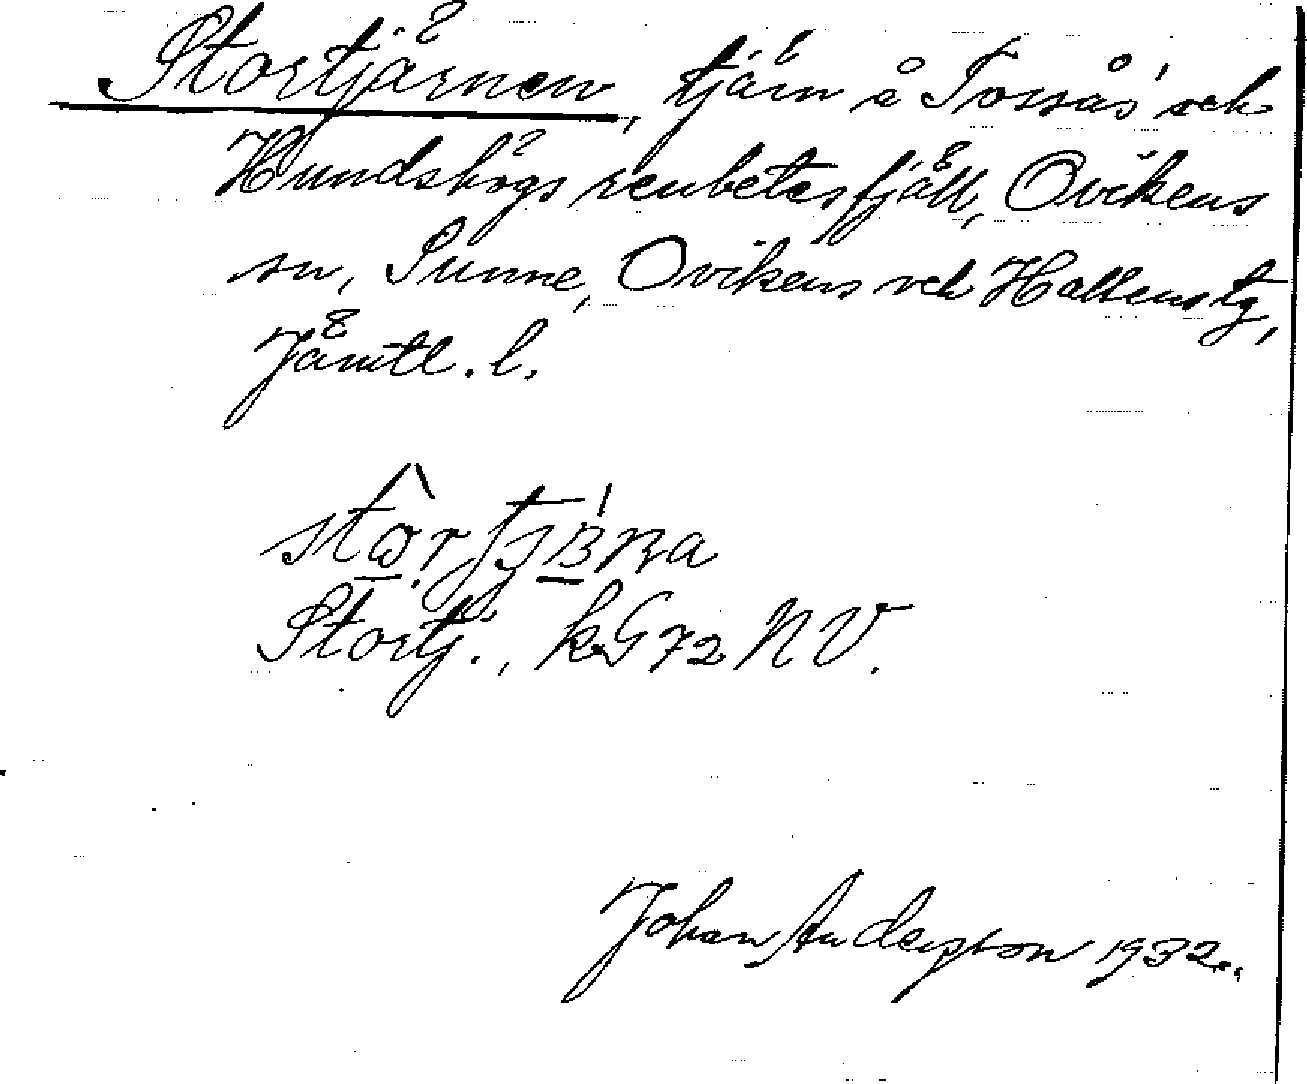 Stortjärnen, tjärn å Tossås och
Hundshögs renbetesfjäll, Ovikens
sn, Sunne, Ovikens och Hallens tg,
Jämtl. l.
Stortj., k G 72 NV.
Johan Anderson 1932.